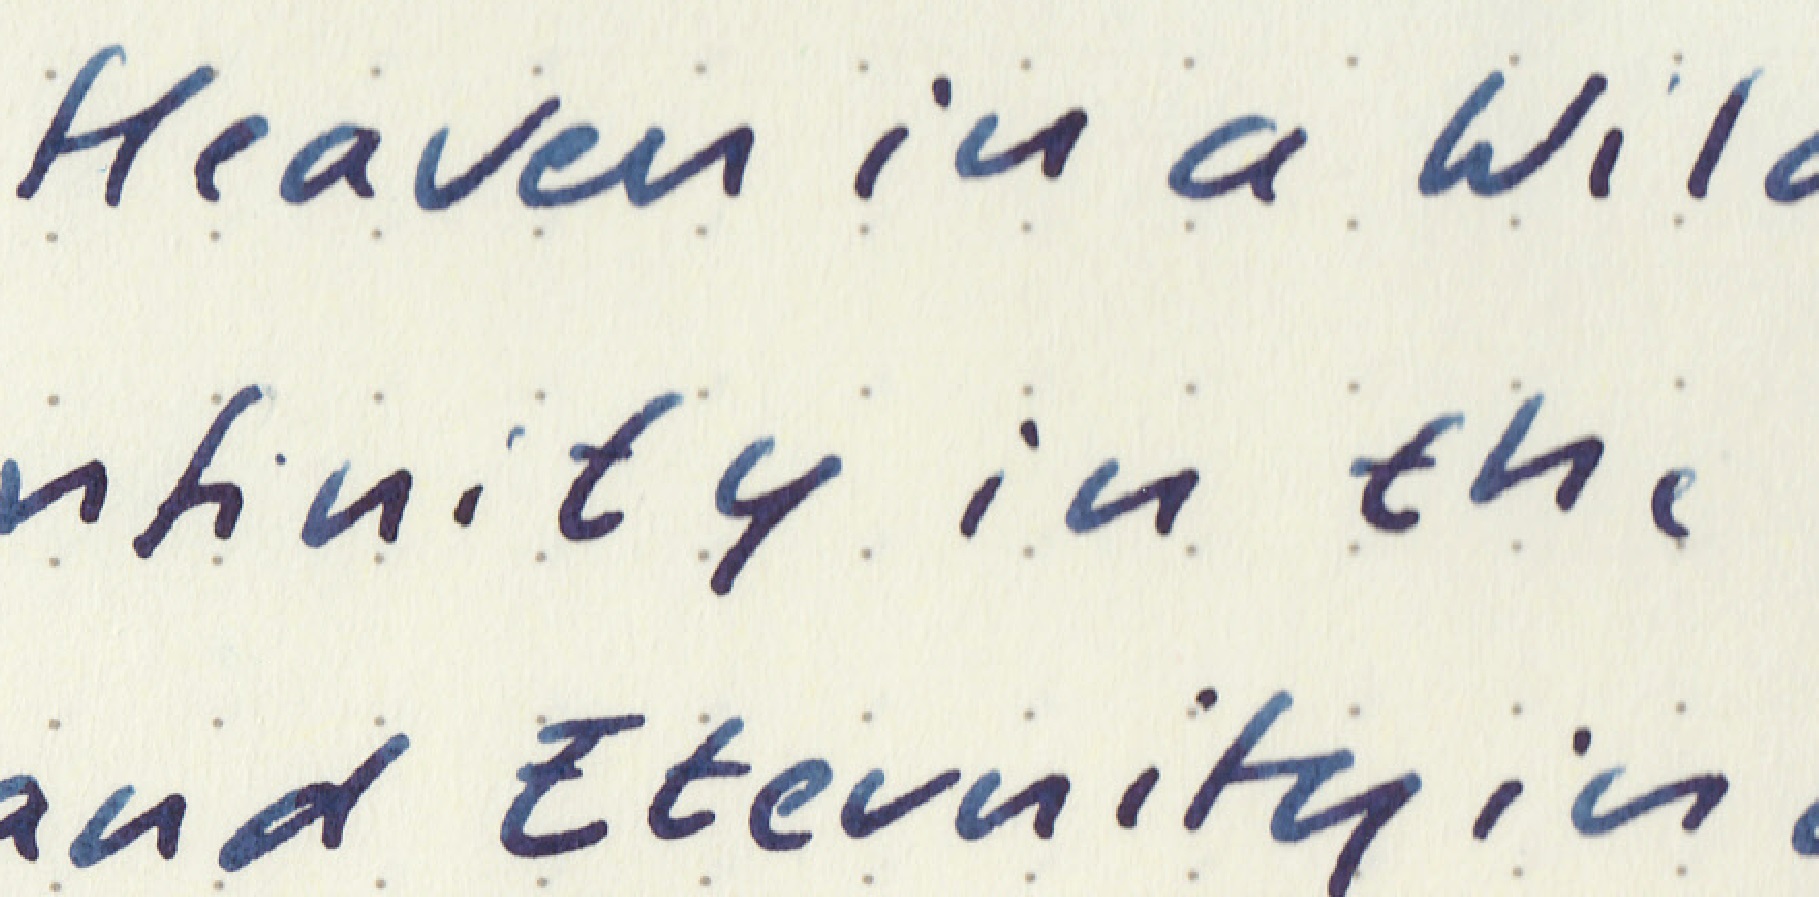 Heaven in a Wild
nfinity in the
and Eternity in a